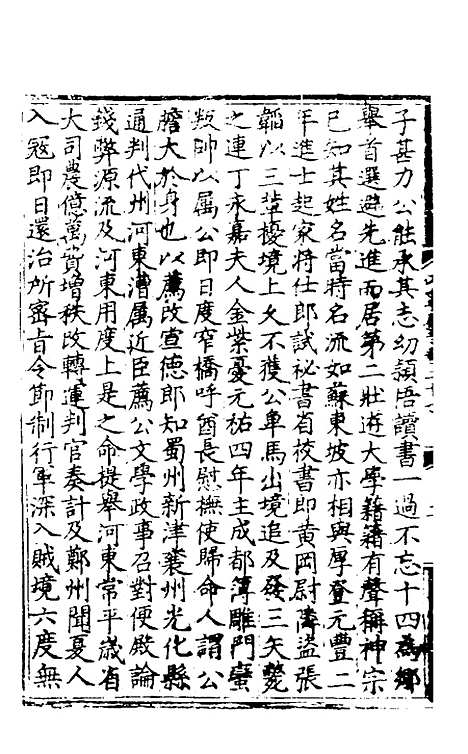 子甚力公能承其志幼穎悟讀書一過不忘十四為鄉
舉首選避先進而居第二壯遊大學籍籍有聲稱神宗
已知其姓名當時名流如蘇東坡亦相與厚登元豐二
年進士起家將仕郎試祕書省校書郎黄岡尉隣盗張
韜以三輩擾境上久不獲公單馬出境追及發三矢斃
之連丁永嘉夫人金紫憂元祐四年主成都簿雕門蠻
叛帥以属公即日度窄橋呼酋長慰撫使歸命人謂公
膽大於身也以薦改宣德郎知蜀州新津襲州光化縣
通判代州河東漕属近臣薦公文學政事召對便殿論
錢弊源流及河東用度上是之命提舉河東常平歳省
大司農億萬質增秩改轉運判官奏計及鄭州聞夏人
入寇即日還治所密旨令節制行軍深入賊境六度無